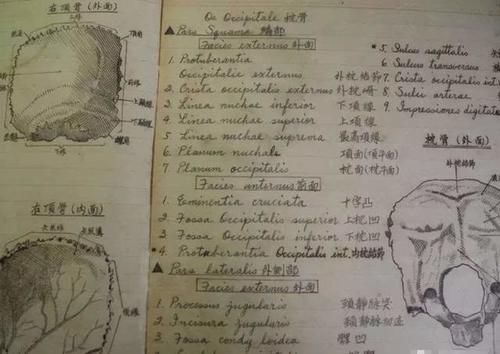 右頂骨 (外面)
頂角
前緣
上顳線
下顳線
右頂骨 (内面)
矢狀緣
矢狀溝
Os Occipitale 枕骨
▲ Pars Squama 鱗部
Facies externus 外面
1. Protuberantia
Occipitalic externus 外枕結節
2. Crista occipitalis externus 外枕嵴
3. Linea nuchae inferior 下項線
4. Linea nuchae superior 上項線
5. Linea nuchae suprema 最高項線
6. Planum nuchale 項面(項平面)
7. Planum occipitalis 枕面(枕平面)
Facies internus
1. Eminentia cruciata 十字凸
2. Fossa Occipitalis superior 上枕凹
3 Fossa Occipitalis inferior 下枕凹
*4. Protuberantia Occipitalis int. 内枕結節
▲ Pars lateralis 外側部
Facies externus 外面
1. Processus jugularis 頸靜脉突
2. Incisura jugularis 頸靜脉切迹
3. Fossa condyloidea 髁凹
*5. Sulcus sagittalis
6. Sulcus transversus
*7. Crista occipitalis int.
8. Sulci arteriae
9. Impressiones digitatae
枕骨 (外面)
外枕結節